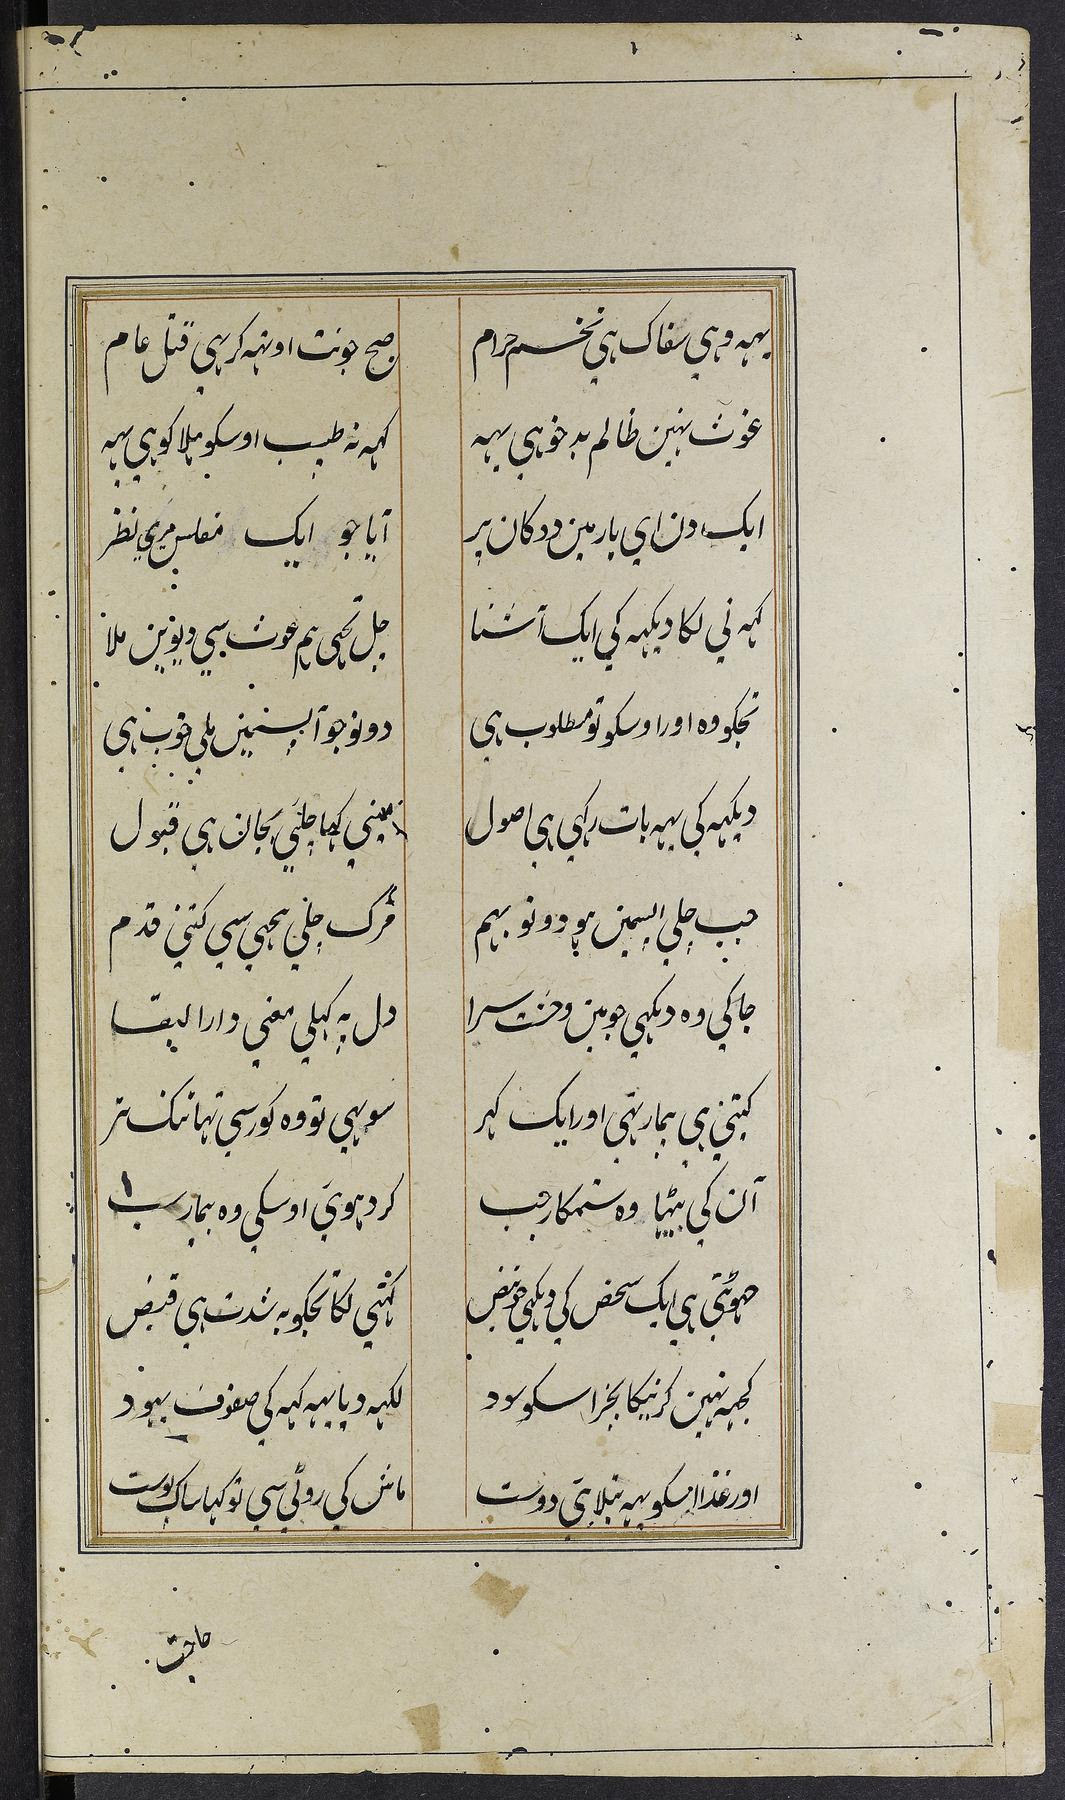 یہہ وہی سفاک ہی تخم حرام
صبح جو نت اوٹہہ کر ہی قتل عام
غوث نہین ظالم بد خو ہی یہہ
کہہ نہ طبیب اوسکو ہلاکو ہی یہہ
ایک دن ای یار مین دوکان پر
آیا جو ایک مفلس مری نظر
کہہ نی لکا دیکہہ کی ایک آشنا
چل تجہی ہم غوث سی دیوین ملا
تجکو وہ اور اوسکو تو مطلوب ہی
دونو جو آپسمین ملی خوب ہی
دیکہہ کی یہہ بات رکہی ہی اصول
مینی کہا چلیی بجان ہی قبول
جب چلی اسمین ہو دونو بہم
مرک چلی مجہی سی کتنی قدم
جاکی وہ دیکہی جو مین وحشت سرا
دل پہ کہلی معنی دار البقا
کتنی ہی بیمار تہی اور ایک کہر
سو بہی تو وہ کور سی تہا تنک تر
آن کی بیٹہا وہ ستمکار جب
کرد ہوی اوسکی وہ بیمار سب
چہوٹتی ہی ایک شخص کی دیکہی جو نبض
کہنی لکا تجکو بہ شدت ہی قبض
کچہہ نہین کرنیکا بجز اسکو سود
لکہہ دیا یہہ کہہ کی صفوف یہود
اور غذا اسکو یہہ بتلاتی دوست
ماش کی روٹی سی تو کہا ساک پوست
حاجت